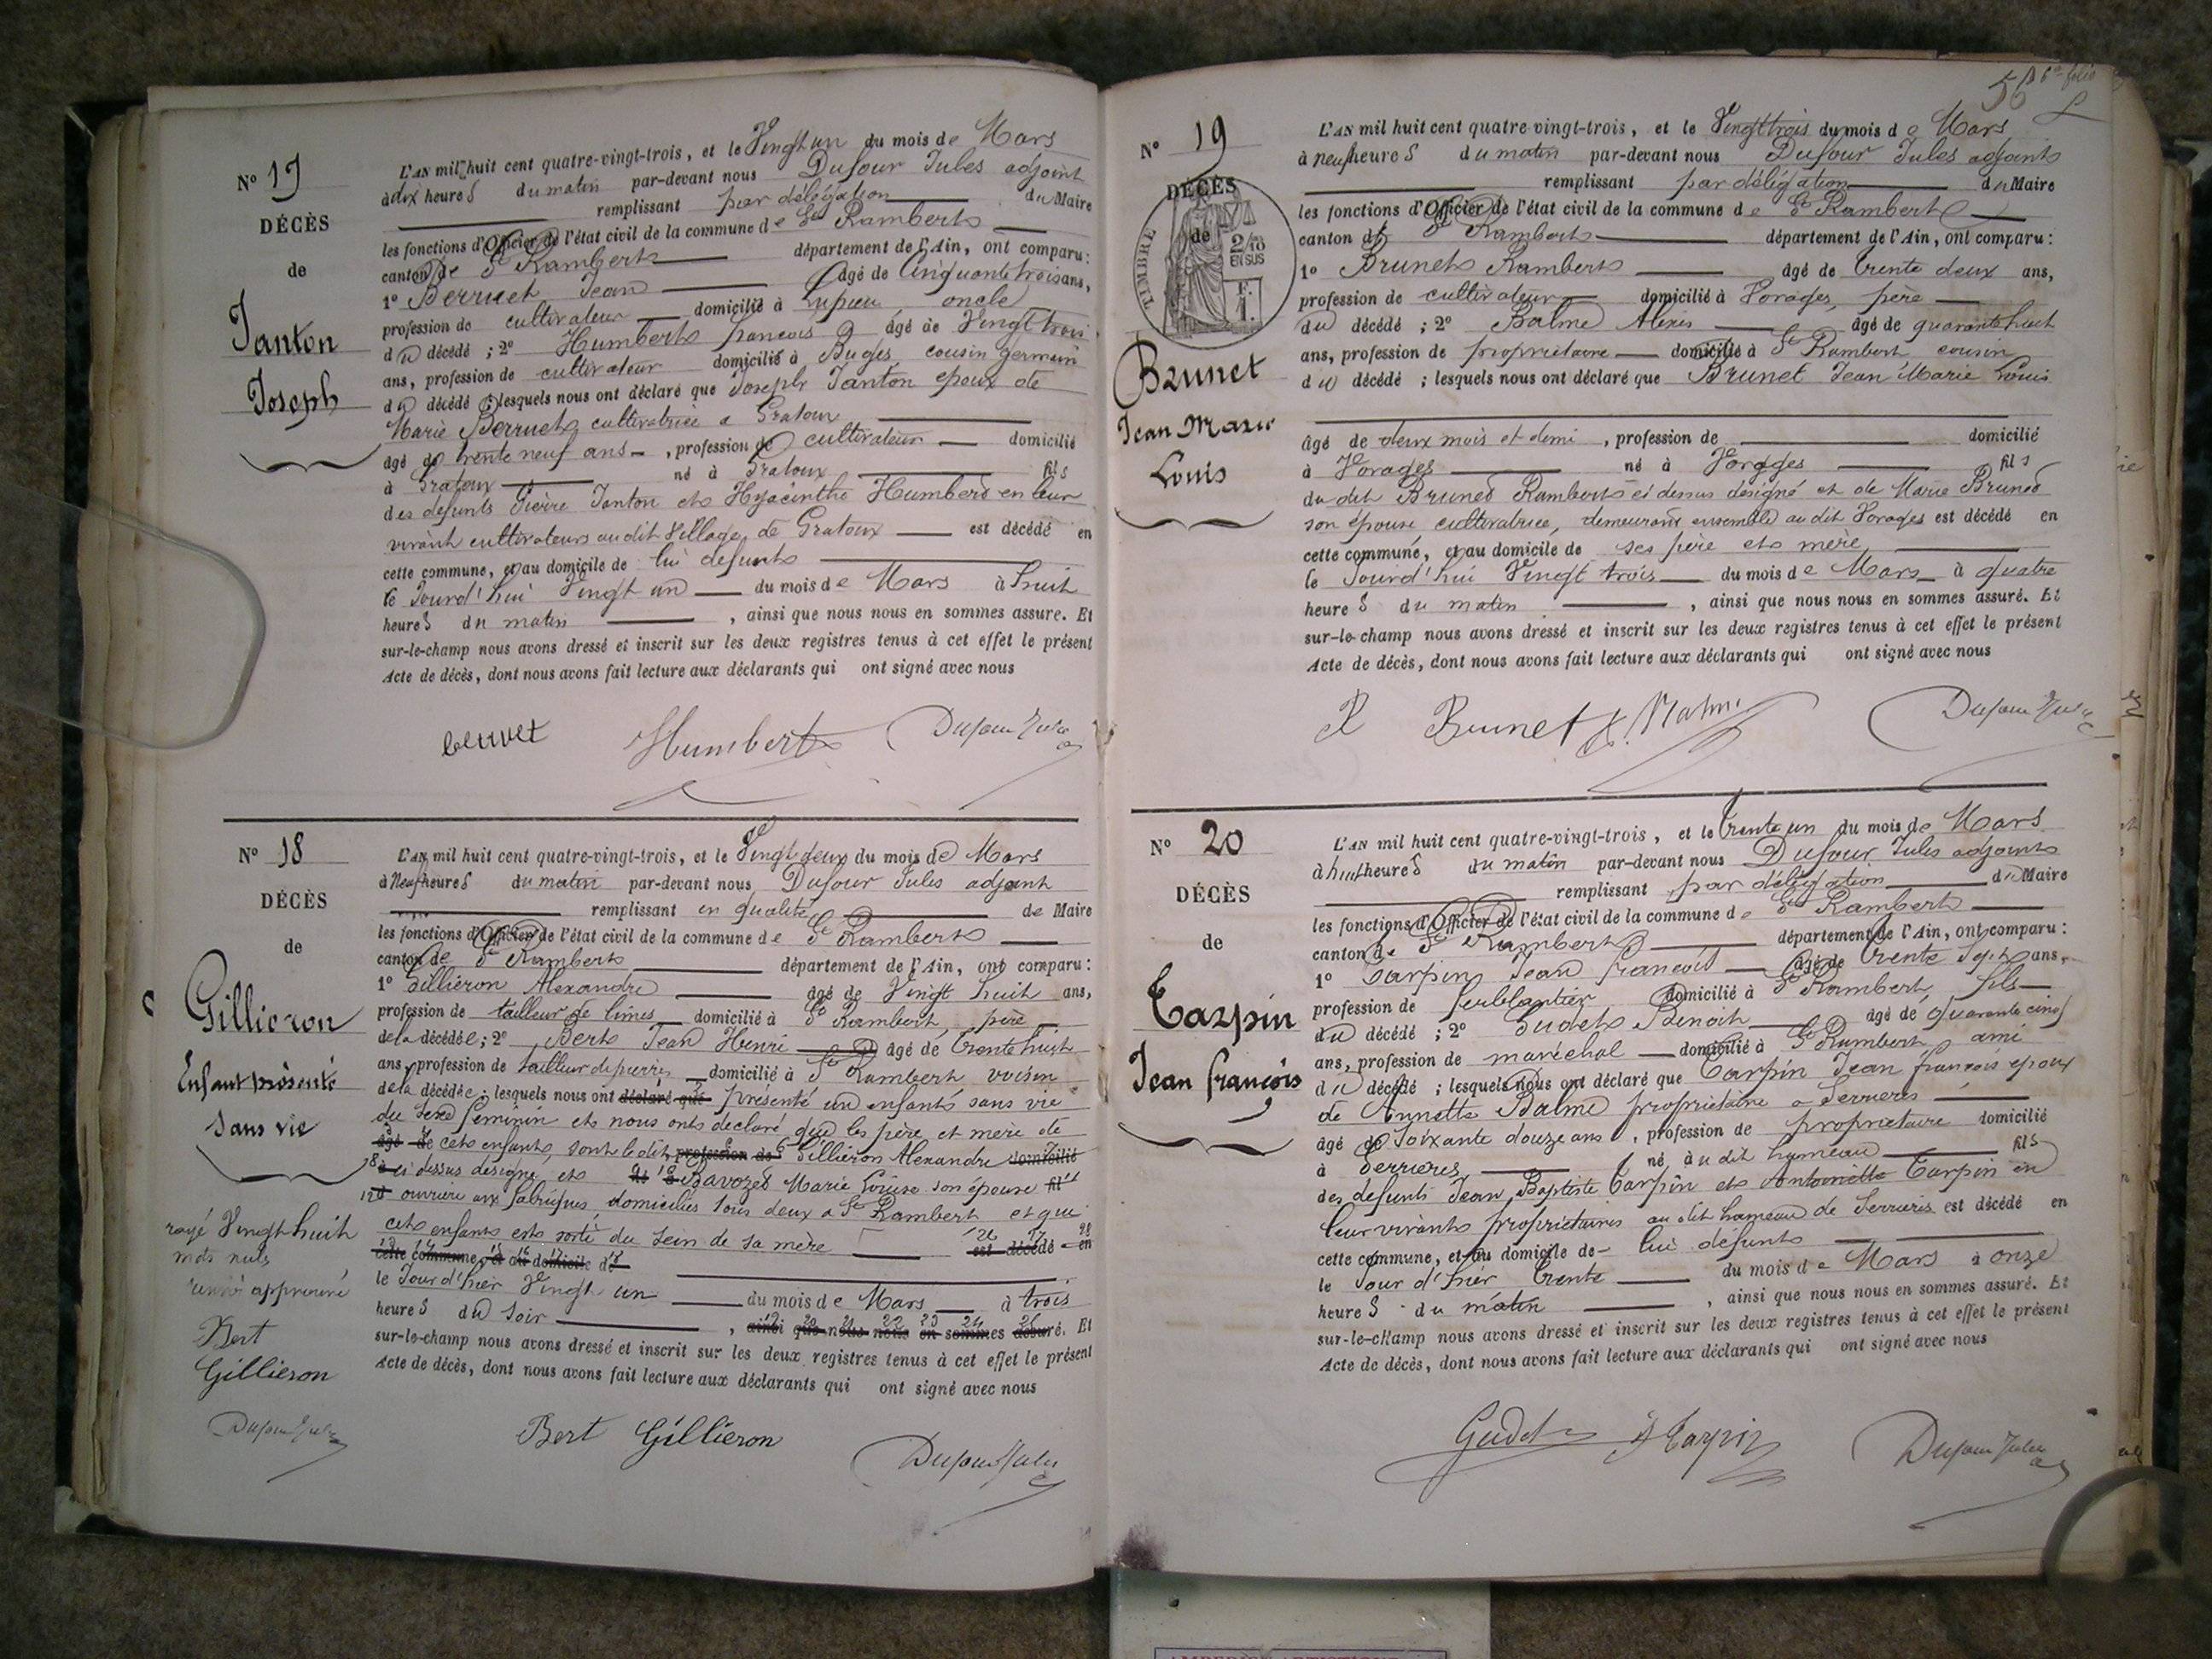 Nº 17
DÉCÈS
de
Janton
Joseph
L'AN mil huit cent quatre-vingt-trois, et le Vingt un du mois de Mars
à dix heures du matin par-devant nous Dufour Jules adjoint
remplissant par délégation du Maire
les fonctions d'Officier de l'état civil de la commune de St Rambert
canton de St Rambert département de l'Ain, ont comparu:
1º Berruet Jean âgé de Cinquante trois ans,
profession de cultivateur domicilié à Lupieu oncle
du décédé; 2º Humbert françois âgé de Vingt trois
ans, profession de cultivateur domicilié à Buges, cousin germain
du décédé; lesquels nous ont déclaré que Joseph Janton époux de
Marie Berruet, cultivatrice a Gratoux
âgé de trente neuf ans, profession de cultivateur domicilié
à Gratoux né à Gratoux fils
des defunts Pierre Janton et Hyacinthe Humbert en leur
vivant cultivateurs au dit Village de Gratoux est décédé en
cette commune, et au domicile de lui defunt
le Jourd'hui Vingt un du mois de Mars à huit
heures du matin, ainsi que nous nous en sommes assuré. Et
sur-le-champ nous avons dressé et inscrit sur les deux registres tenus à cet effet le présent
Acte de décès, dont nous avons fait lecture aux déclarants qui ont signé avec nous
Humbert Dufour Jules
Nº 18
DÉCÈS
de
Gillieron
Enfant présenté
Sans vie
L'AN mil huit cent quatre-vingt-trois, et le Vingt deux du mois de Mars
à Neuf heures du matin par-devant nous Dufour Jules adjoint
remplissant en qualité de Maire
les fonctions d'Officier de l'état civil de la commune de St Rambert
canton de St Rambert département de l'Ain, ont comparu:
1º Gillieron Alexandre âgé de Vingt huit ans,
profession de tailleur de limes domicilié à St Rambert, père
de la décédée; 2º Bert Jean Henri âgé de trente huit
ans, profession de tailleur de pierres domicilié à St Rambert voisin
de la décédée; lesquels nous ont déclaré que présenté un enfant sans vie
du sexe féminin et nous ont déclaré que les père et mère de
âgé de cet enfant, sont le dit profession de Gillieron Alexandre domicilié
à ci dessus désigné et né à Bavozet Marie Louise son épouse fil
ouvrière aux fabriques, domiciliés tous deux a St Rambert et que
cet enfant est sorti du sein de sa mère est décédé en
cette commune, et au domicile de
le Jour d'hier Vingt un du mois de Mars à trois
heures du soir, ainsi que nous nous en sommes assuré. Et
sur-le-champ nous avons dressé et inscrit sur les deux registres tenus à cet effet le présent
Acte de décès, dont nous avons fait lecture aux déclarants qui ont signé avec nous
rayé Vingt huit
mots nuls
approuvé
Bert
Gillieron
Dufour Jules
Bert Gillieron Dufour Jules
56
Nº 19
DÉCÈS
de
TIMBRE
2/10
EN SUS
F.
1.
Brunet
Jean Marie
Louis
L'AN mil huit cent quatre-vingt-trois, et le Vingt trois du mois de Mars
à neuf heures du matin par-devant nous Dufour Jules adjoint
remplissant par délégation du Maire
les fonctions d'Officier de l'état civil de la commune de St Rambert
canton de St Rambert département de l'Ain, ont comparu:
1º Brunet Rambert âgé de trente deux ans,
profession de cultivateur domicilié à Vorages, père
du décédé; 2º Balme Alexis âgé de quarante huit
ans, profession de propriétaire domicilié à St Rambert cousin
du décédé; lesquels nous ont déclaré que Brunet Jean Marie Louis
âgé de deux mois et demi, profession de domicilié
à Vorages né à Vorages fils
du dit Brunet Rambert ci dessus désigné et de Marie Brunet
son épouse cultivatrice, demeurant ensemble au dit Vorages est décédé en
cette commune, et au domicile de ses père et mère
le Jourd'hui Vingt trois du mois de Mars à quatre
heures du matin, ainsi que nous nous en sommes assuré. Et
sur-le-champ nous avons dressé et inscrit sur les deux registres tenus à cet effet le présent
Acte de décès, dont nous avons fait lecture aux déclarants qui ont signé avec nous
R Brunet Dufour Jules
Nº 20
DÉCÈS
de
Tarpin
Jean françois
L'AN mil huit cent quatre-vingt-trois, et le trente un du mois de Mars
à huit heures du matin par-devant nous Dufour Jules adjoint
remplissant par délégation du Maire
les fonctions d'Officier de l'état civil de la commune de St Rambert
canton de St Rambert département de l'Ain, ont comparu:
1º Tarpin Jean françois âgé de trente sept ans,
profession de ferblantier domicilié à St Rambert, fils
du décédé; 2º Gudet Benoit âgé de quarante cinq
ans, profession de maréchal domicilié à St Rambert, ami
du décédé; lesquels nous ont déclaré que Tarpin Jean françois époux
de Annette Balme propriétaire a Serrières
âgé de soixante douze ans, profession de propriétaire domicilié
à Serrières, né au dit hameau fils
des defunts Jean Baptiste Tarpin et Antoinette Tarpin en
leur vivant propriétaires au dit hameau de Serrières est décédé en
cette commune, et au domicile de lui défunt
le Jour d'hier trente du mois de Mars à onze
heures du matin, ainsi que nous nous en sommes assuré. Et
sur-le-champ nous avons dressé et inscrit sur les deux registres tenus à cet effet le présent
Acte de décès, dont nous avons fait lecture aux déclarants qui ont signé avec nous
Gudet Tarpin Dufour Jules